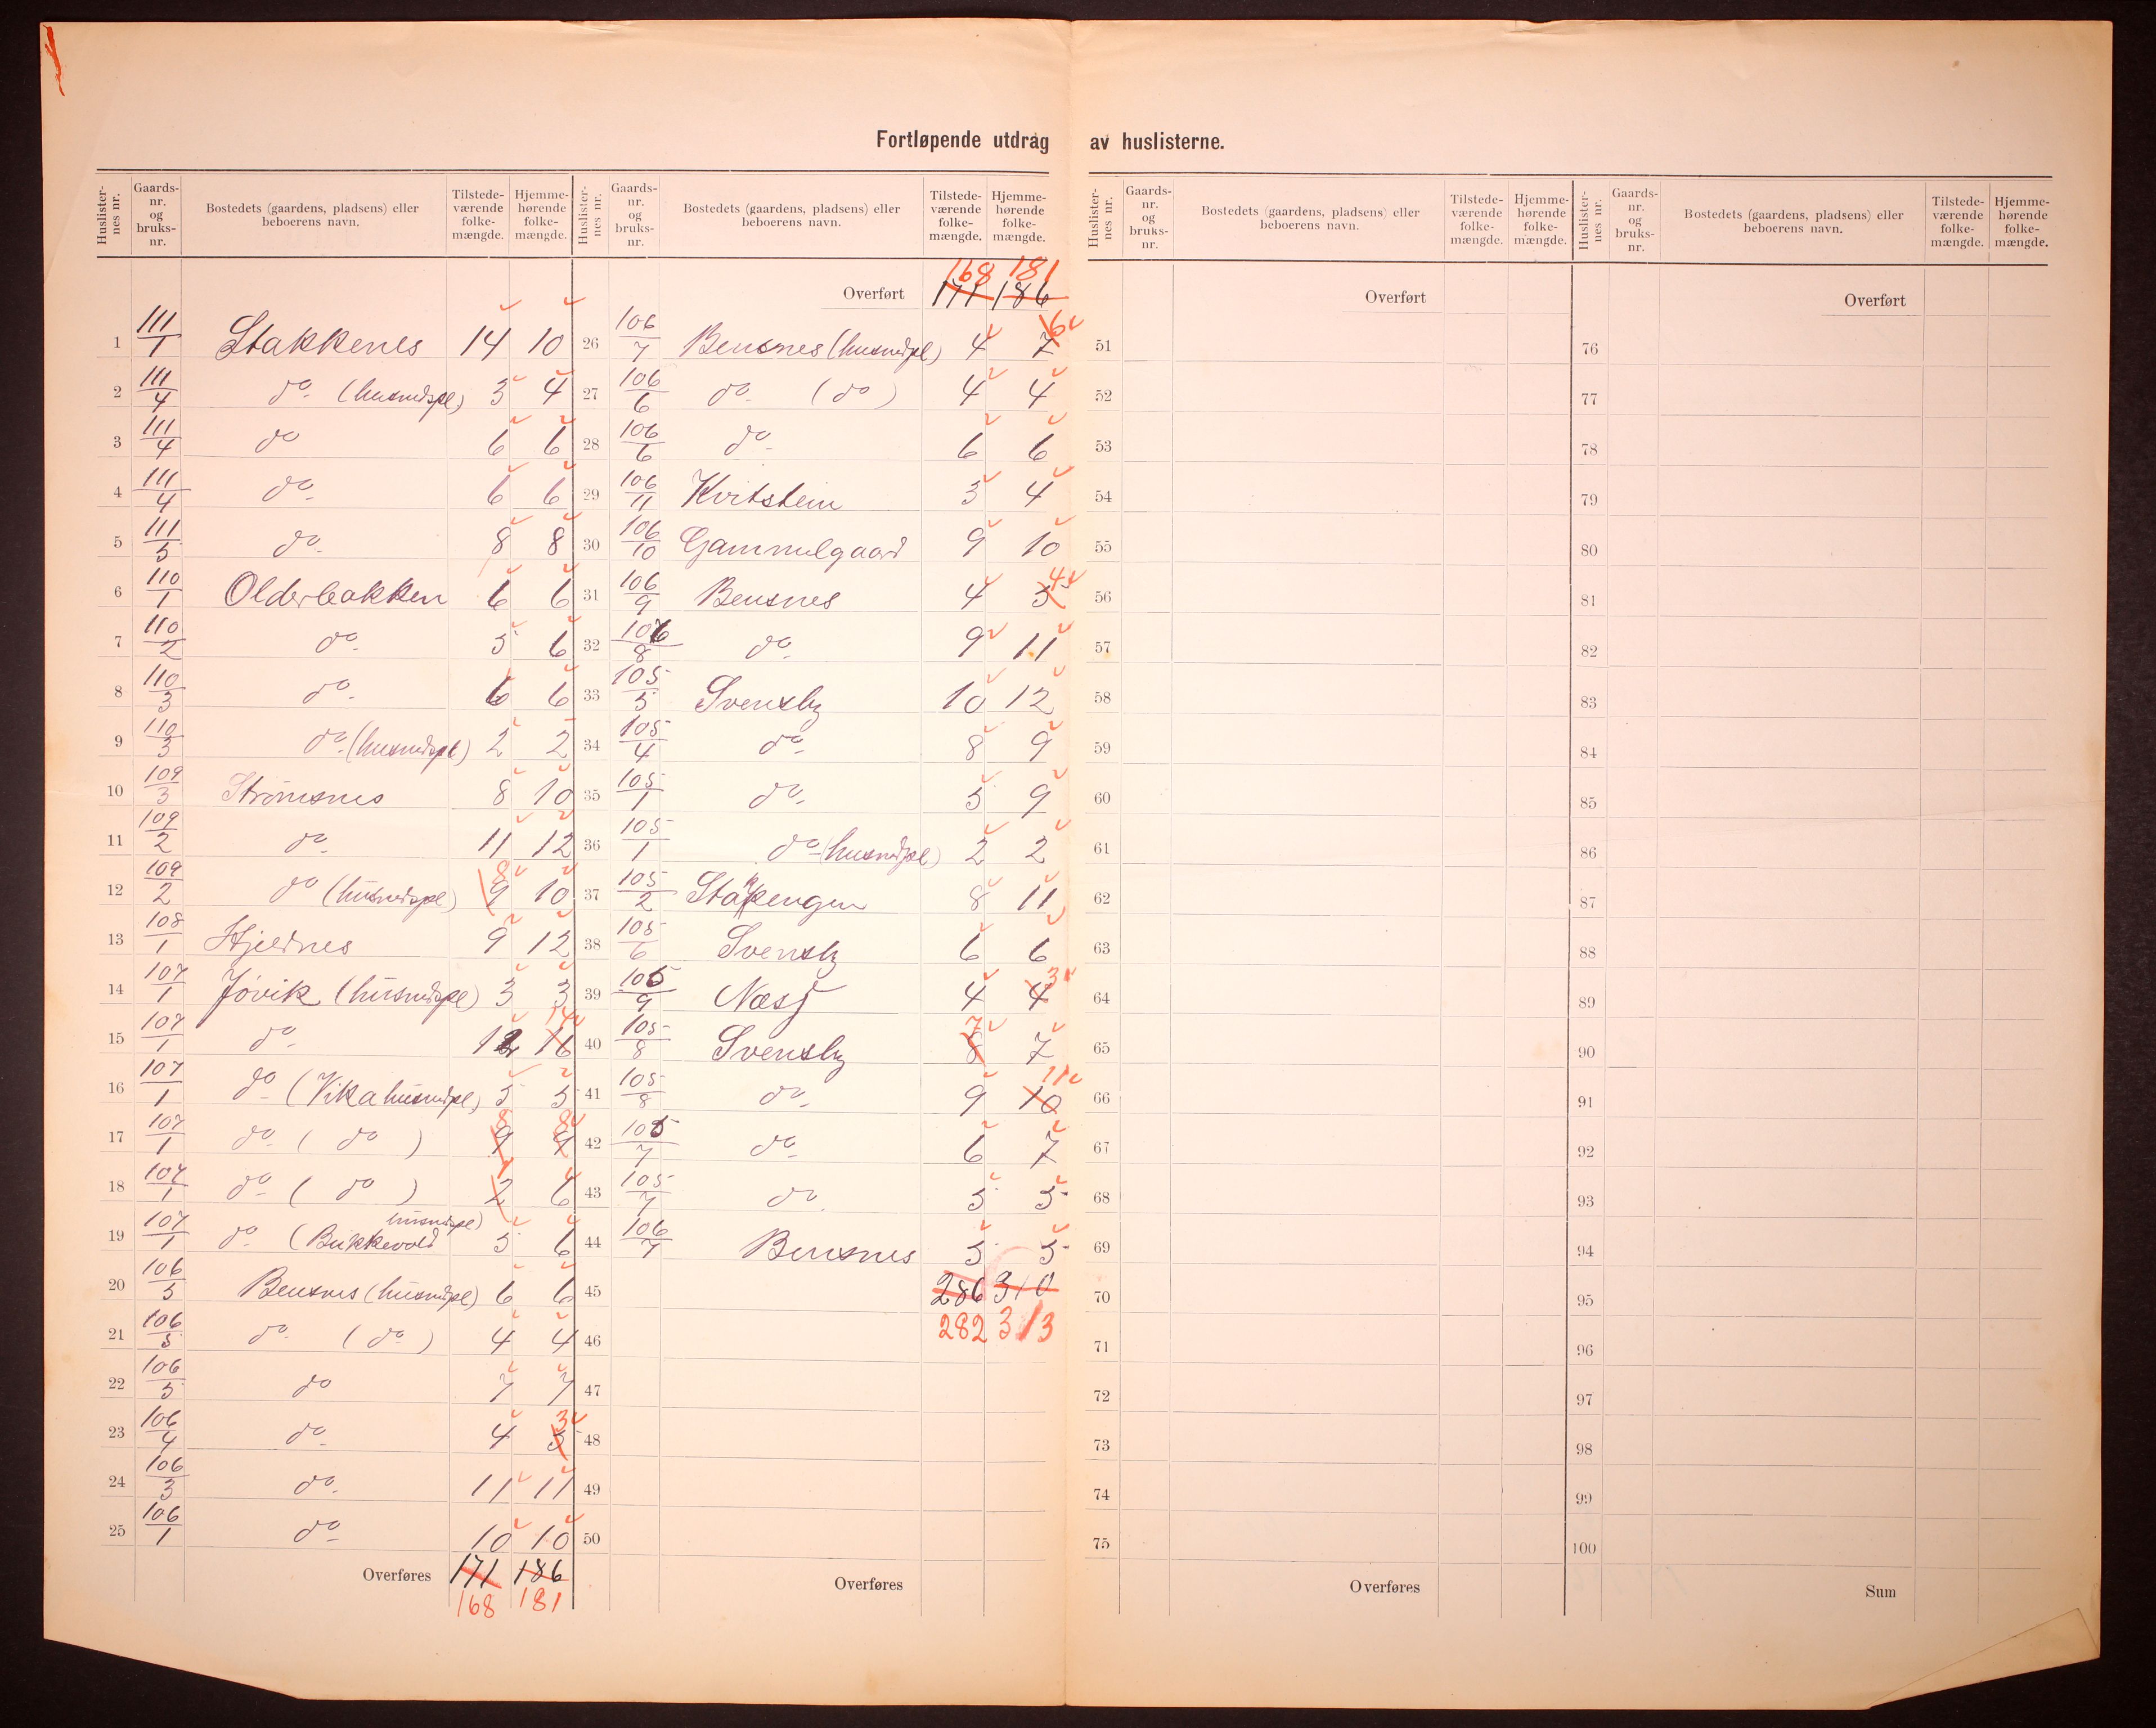 Fortløpende utdrag av huslisterne.
Huslister-nes nr. Gaards-nr. og bruks-nr. Bostedets (gaardens, pladsens) eller beboerens navn. Tilstede-værende folke-mængde. Hjemme-hørende folke-mængde.
1 111/1 Stakkenes 14 10
2 111/4 do (husmdspl) 3 4
3 111/4 do 6 6
4 111/4 do 6 6
5 111/5 do 8 8
6 110/1 Olderbakken 6 6
7 110/2 do 5 6
8 110/3 do 6 6
9 110/3 do (husmdspl) 2 2
10 109/3 Strømsnes 8 10
11 109/2 do 11 12
12 109/2 do (husmdspl) 9 8 10
13 108/1 Hjeldnes 9 12
14 107/1 Jøvik (husmdspl) 3 3
15 107/1 do 12 16 14
16 107/1 do (Vika husmdpl) 5 5
17 107/1 do (do) 9 8 9 8
18 107/1 do (do) 2 1 6
19 107/1 do (Bukkevold husmdspl) 5 6
20 106/5 Bensnes (husmdpl) 6 6
21 106/5 do (do) 4 4
22 106/5 do 7 7
23 106/4 do 4 5 3
24 106/3 do 11 11
25 106/1 do 10 10
Overføres 171 186
168 181
Huslister-nes nr. Gaards-nr. og bruks-nr. Bostedets (gaardens, pladsens) eller beboerens navn. Tilstede-værende folke-mængde. Hjemme-hørende folke-mængde.
168 181
Overført 171 186
26 106/7 Bensnes (husmdpl) 4 7 6
27 106/6 do (do) 4 4
28 106/6 do 6 6
29 106/11 Kvitstein 3 4
30 106/10 Gammelgaard 9 10
31 106/9 Bensnes 4 3 4
32 106/8 do 9 11
33 105/5 Svensby 10 12
34 105/4 do 8 9
35 105/1 do 5 9
36 105/1 do (husmdpl) 2 2
37 105/2 Stakkengen 8 11
38 105/6 Svensby 6 6
39 105/9 Næss 4 4 3
40 105/8 Svensby 8 7 7
41 105/8 do 9 10 11
42 105/7 do 6 7
43 105/7 do 5 5
44 106/7 Bensnes 5 5
45 286 310
46 282 313
47
48
49
50
Overføres
Huslister-nes nr. Gaards-nr. og bruks-nr. Bostedets (gaardens, pladsens) eller beboerens navn. Tilstede-værende folke-mængde. Hjemme-hørende folke-mængde.
Overført
51
52
53
54
55
56
57
58
59
60
61
62
63
64
65
66
67
68
69
70
71
72
73
74
75
Overføres
Huslister-nes nr. Gaards-nr. og bruks-nr. Bostedets (gaardens, pladsens) eller beboerens navn. Tilstede-værende folke-mængde. Hjemme-hørende folke-mængde.
Overført
76
77
78
79
80
81
82
83
84
85
86
87
88
89
90
91
92
93
94
95
96
97
98
99
100
Sum